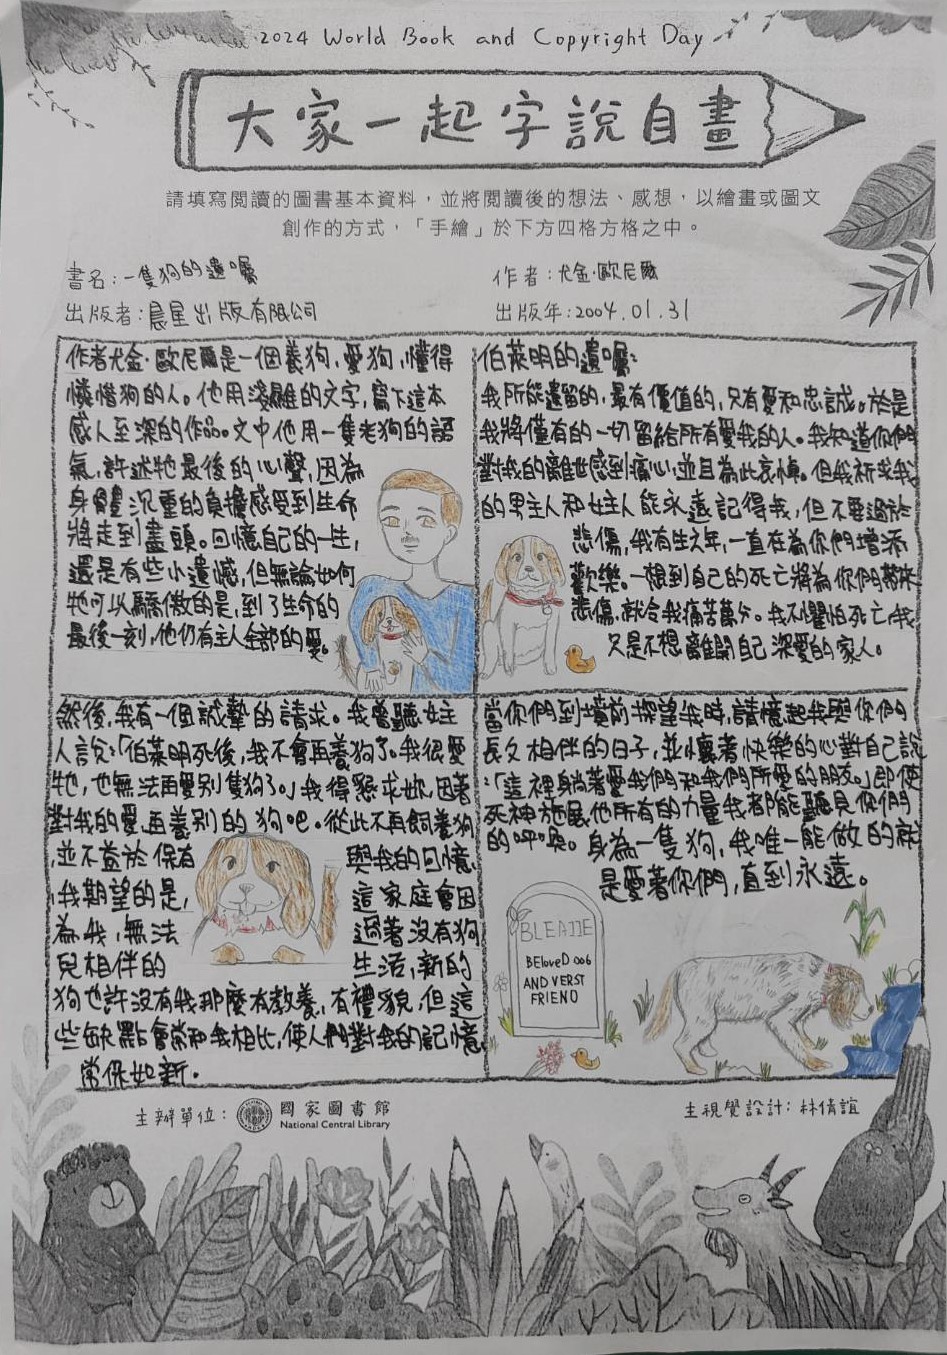 2024 World Book and Copyright Day
大家一起字說自畫
請填寫閱讀的圖書基本資料，並將閱讀後的想法、感想，以繪畫或圖文
創作的方式，「手繪」於下方四格方格之中。
書名：一隻狗的遺囑
作者：尤金·歐尼爾
出版者：晨星出版有限公司
出版年：2004.01.31
作者尤金·歐尼爾是一個養狗，愛狗，懂得
憐惜狗的人。他用淺顯的文字，寫下這本
感人至深的作品。文中他用一隻老狗的語
氣，許述牠最後的心聲，因為
身體沉重的負擔感受到生命
將走到盡頭。回憶自己的一生，
還是有些小遺憾，但無論如何
牠可以驕傲的是，到了生命的
最後一刻，他仍有主人全部的愛。
伯萊明的遺囑：
我所能遺留的，最有價值的，只有愛和忠誠。於是
我將僅有的一切留給所有愛我的人。我知道你們
對我的離世感到痛心，並且為此哀悼。但我祈求我
的男主人和女主人能永遠記得我，但不要過於
悲傷，我有生之年，一直在為你們增添
歡樂。一想到自己的死亡將為你們帶來
悲傷，就令我痛苦萬分。我不懼怕死亡，我
只是不想離開自己深愛的家人。
然後，我有一個誠摯的請求。我曾聽女主
人說：「伯萊明死後，我不會再養狗了。我很愛
牠，也無法再愛別隻狗了。」我得懇求妳，因著
對我的愛，再養別的狗吧。從此不再飼養狗
，並不益於保有與我的回憶。
，我期望的是，這家庭會因
為我，無法過著沒有狗
兒相伴的生活，新的
狗也許沒有我那麼有教養，有禮貌，但這
些缺點會常和我相比，使人們對我的記憶
常保如新。
當你們到墳前探望我時，請憶起我與你們
長久相伴的日子，並懷著快樂的心對自己說
：「這裡躺著愛我們和我們所愛的朋友。」即使
死神施展他所有的力量我都能聽見你們
的呼喚。身為一隻狗，我唯一能做的就
是愛著你們，直到永遠。
BELOVED DOG
AND VERST
FRIEND
主辦單位：
國家圖書館
National Central Library
主視覺設計：林倩誼